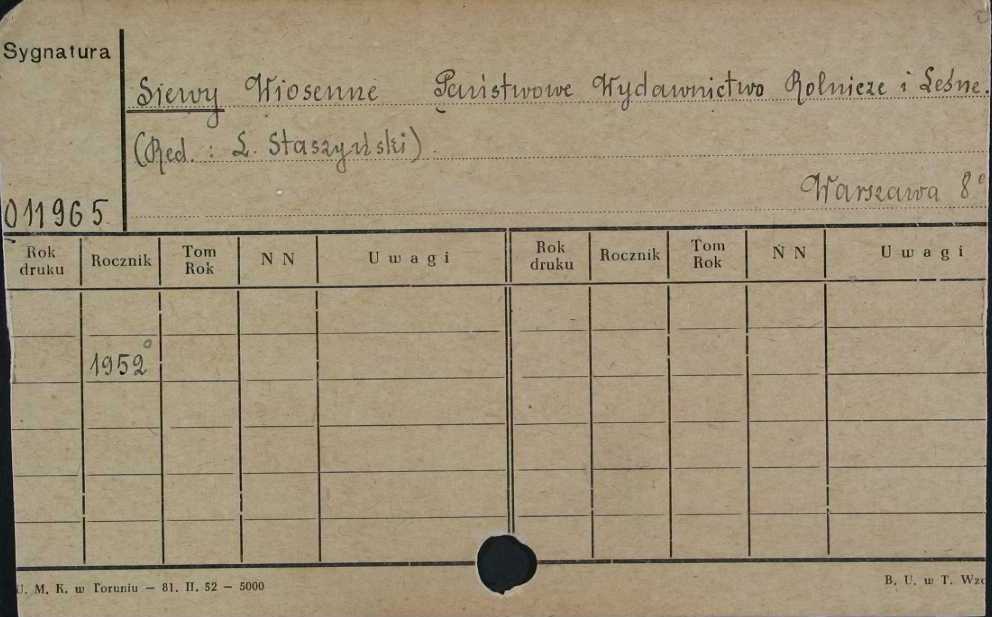 Sygnatura
Siewy Wiosenne Państwowe Wydawnictwo Rolnicze i Leśne.
(Red. : L. Staszyński)
Warszawa 8°
011965
Rok druku Rocznik Tom Rok N N Uwagi Rok druku Rocznik Tom Rok N N Uwagi
1952°
U. M. K. w Toruniu — 81. II. 52 — 5000
B. U. w T.